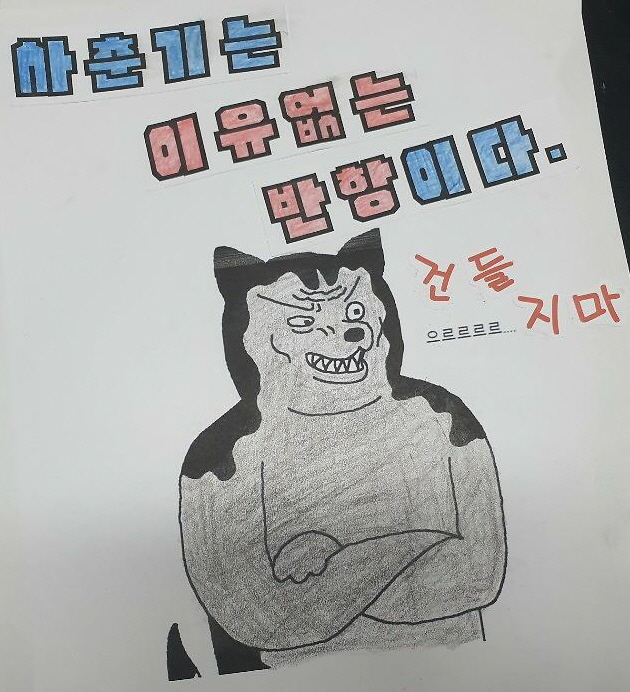 사춘기는
이유없는
반항이다.
건들
지마
으르르르르.....